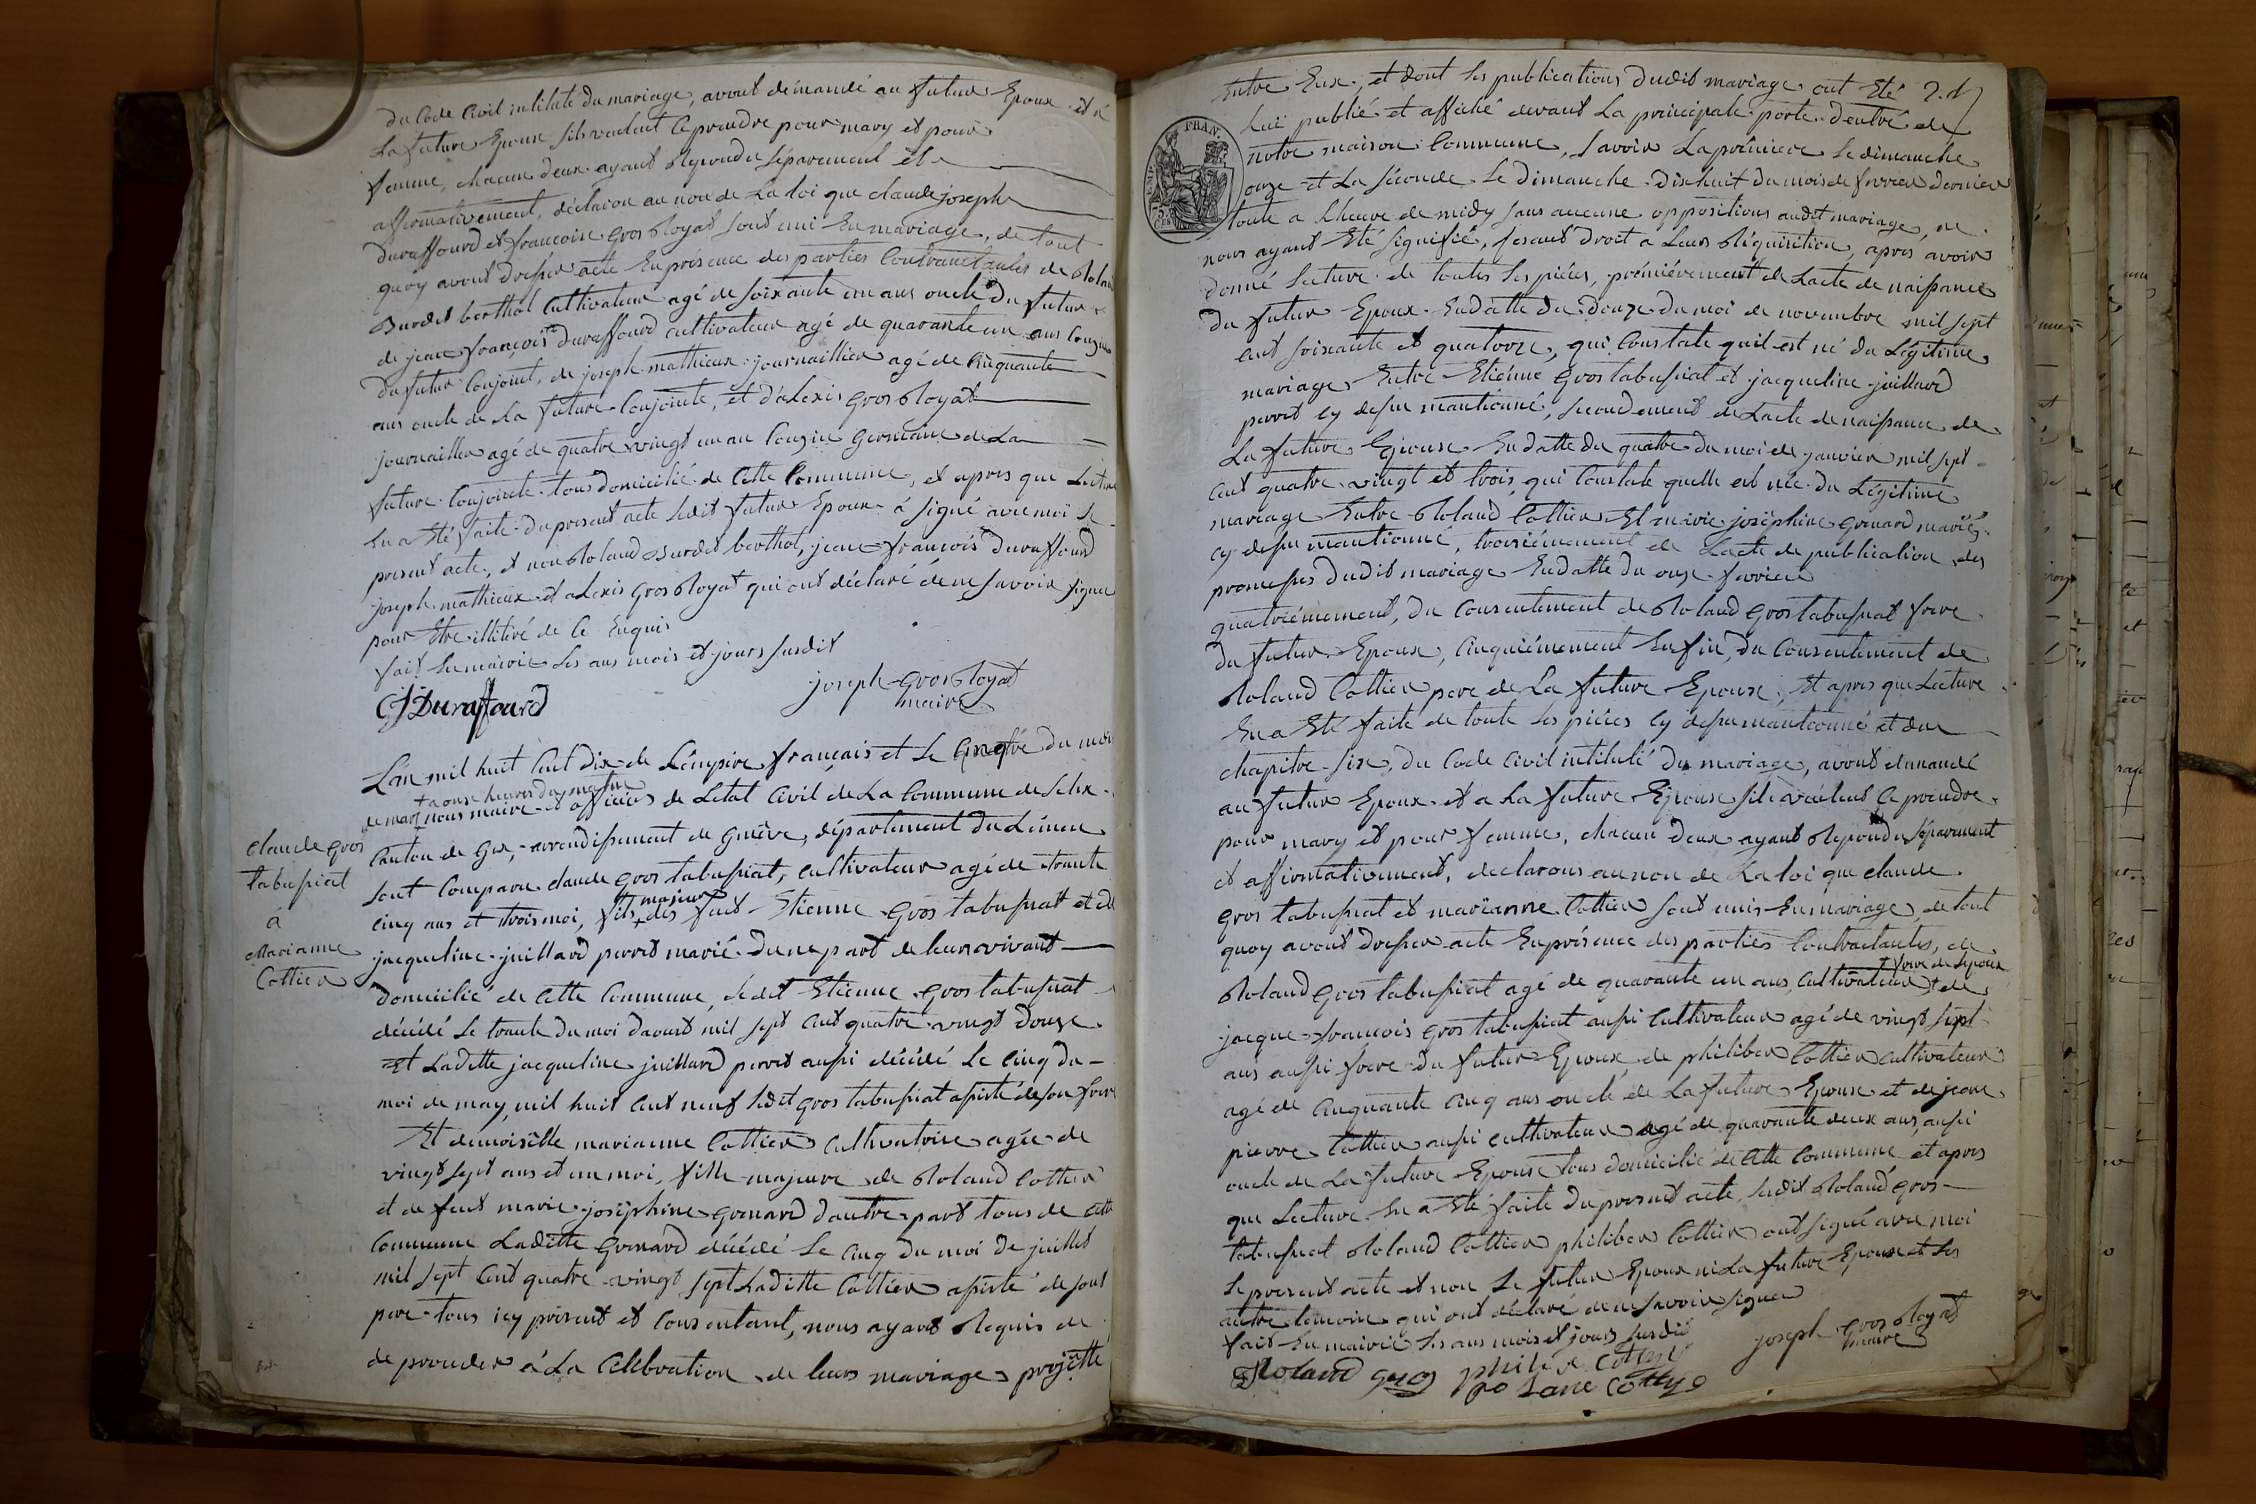 du Code Civil intitulé du mariage, avont démandé au futur Epoux et a
La future Epouse sils veulent ce prendre pour mary et pour
femme, chacun deux ayant Repondu séparement et
affirmativement, déclaron au non de La loi que claude joseph
Duraffourd et francoise gros Royat sont uni En mariage, de tout
quoy avont dressér acte En présence des parties Contractantes de Rolan
Burdet berthol Cultivateur agé de soixante un ans oncle du futur
de jean françois Duraffourd cultivateur agé de quarante un ans Cousin
du futur Conjoint, de joseph mathieux journaillier agé de Cinquante
ans oncle de La future Conjointe, et d'alexis gros Royat
journaillier agé de quatre vingt un an Cousin Germain de La
future Conjointe tous domicilié de Cette Commune, et apres que Lectur
En a Eté faite du présent acte Ledit futur Epoux à signé avec moi le
présent acte, et non Roland Burdet berthol, jean françois Duraffourd
joseph mathieux et alexis gros Royat qui ont déclaré de ne savoir signer
pour Etre illitiré de Ce Enquis
fait En mairie Les ans mois et jours susdit
CJ Duraffourd
joseph gros Royat
maire
L'an mil huit Cent dix de L'émpire français et Le quatre du mois
+ a onze heures du matin
de mars nous maire et officier de Létat Civil de La Commune de Lelex
Canton de Gex, arrondissement de Genève, département du Léman
sont Comparu claude gros tabussiat, cultivateur agé de trante
majeur
cinq ans et trois moi, fils + des fut Etienne gros tabussiat et de
jacqueline juillard perrod marié dune part de leur vivant
domicilié de Cette Commune, Ledit Etienne gros tabussiat
décédé Le trante du moi daoust mil sept Cent quatre vingt douze
Et Laditte jacqueline juillard perrod aussi décédé Le cinq du
moi de may, mil huit Cent neuf Ledit gros tabussiat assisté de son frere
Et demoiselle marianne Cottier Cultivatrice agée de
vingt sept ans et un moi, fille majeure de Roland Cottier
et de fut marie joséphine Grenard dautre part tous de Cette
Commune Laditte Grenard décédé Le cinq du moi de juillet
mil sept Cent quatre vingt sept Laditte Cottier assisté de sont
pere tous icy présent et Consentant, nous ayant Requis de
de proceder à La Célébration de leurs mariages projetté
claude gros
tabussiat
à
Marianne
Cottier
Entre Eux, et dont les publications dudit mariage ont Eté
Lui publié et affiché devant La principale porte dentré de
notre maison Commune, savoir La prémiere Le dimanche
onze et La séconde Le dimanche dix huit du mois de fevrier dernier
toute a Lheure de midy sans aucune oppositions audit mariage, ne
nous ayant Eté signifié, fesant droit a Leurs Réquisition, apres avoir
donné Lecture de toutes Les piéces, prémiérement de Lacte de naissance
du futur Epoux En datte du douze du moi de novembre mil sept
Cent soixante et quatorze, qui Constate quil est né du Légitime
mariage Entre Etiénne gros tabussiat et jacqueline juillard
perrod cy dessu mantionné, secondement de Lacte de naissance de
La future Epouse En datte du quatre du moi de janvier mil sept
Cent quatre vingt et trois, qui Constate quelle est née du Légitime
mariage Entre Roland Cottier Et marie joséphine Grenard mariés
cy dessu mantionné, troisiémement de Lacte de publication des
promesses dudit mariage En datte du onze fevrier
quatriémement, du Consentement de Roland gros tabussiat frere
du futur Epoux, Cinquiémement Enfin, du Consentement de
Roland Cottier pere de La future Epouse, Et apres que Lecture
En a Eté faite de toute Les piéces cy dessu mantionné et du
chapitre six, du Code Civil intitulé du mariage, avont demandé
au futur Epoux et a La future Epouse sils veulent Ce prendre
pour mary et pour femme, chacun deux ayant Repondu séparement
et affirmativement, declarons au non de La loi que claude
gros tabussiat et marianne Cottier sont unis En mariage, de tout
quoy avont dresser acte En présence des parties Contractantes, de
+ frere de Lepoux
Roland gros tabussiat agé de quarante un ans, cultivateur + de
jacque françois gros tabussiat aussi cultivateur agé de vingt sept
ans aussi frere du futur Epoux, de philiber Cottier cultivateur
agé de Cinquante Cinq ans oncle de La future Epouse et de jean
pierre Cottier aussi cultivateur agé de quarante deux ans, aussi
oncle de La future Epouse tous domicilié de Cette Commune et apres
que Lecture En a Eté faite du présent acte, Ledit Roland gros
tabussiat Roland Cottier philiber Cottier ont signé avec moi
Le present acte et non Le futur Epoux ni La future Epouse et les
autre temoins qui ont déclaré de ne savoir signer
fait En mairie les ans mois et jours susdit
joseph gros Royat
maire
Roland gros